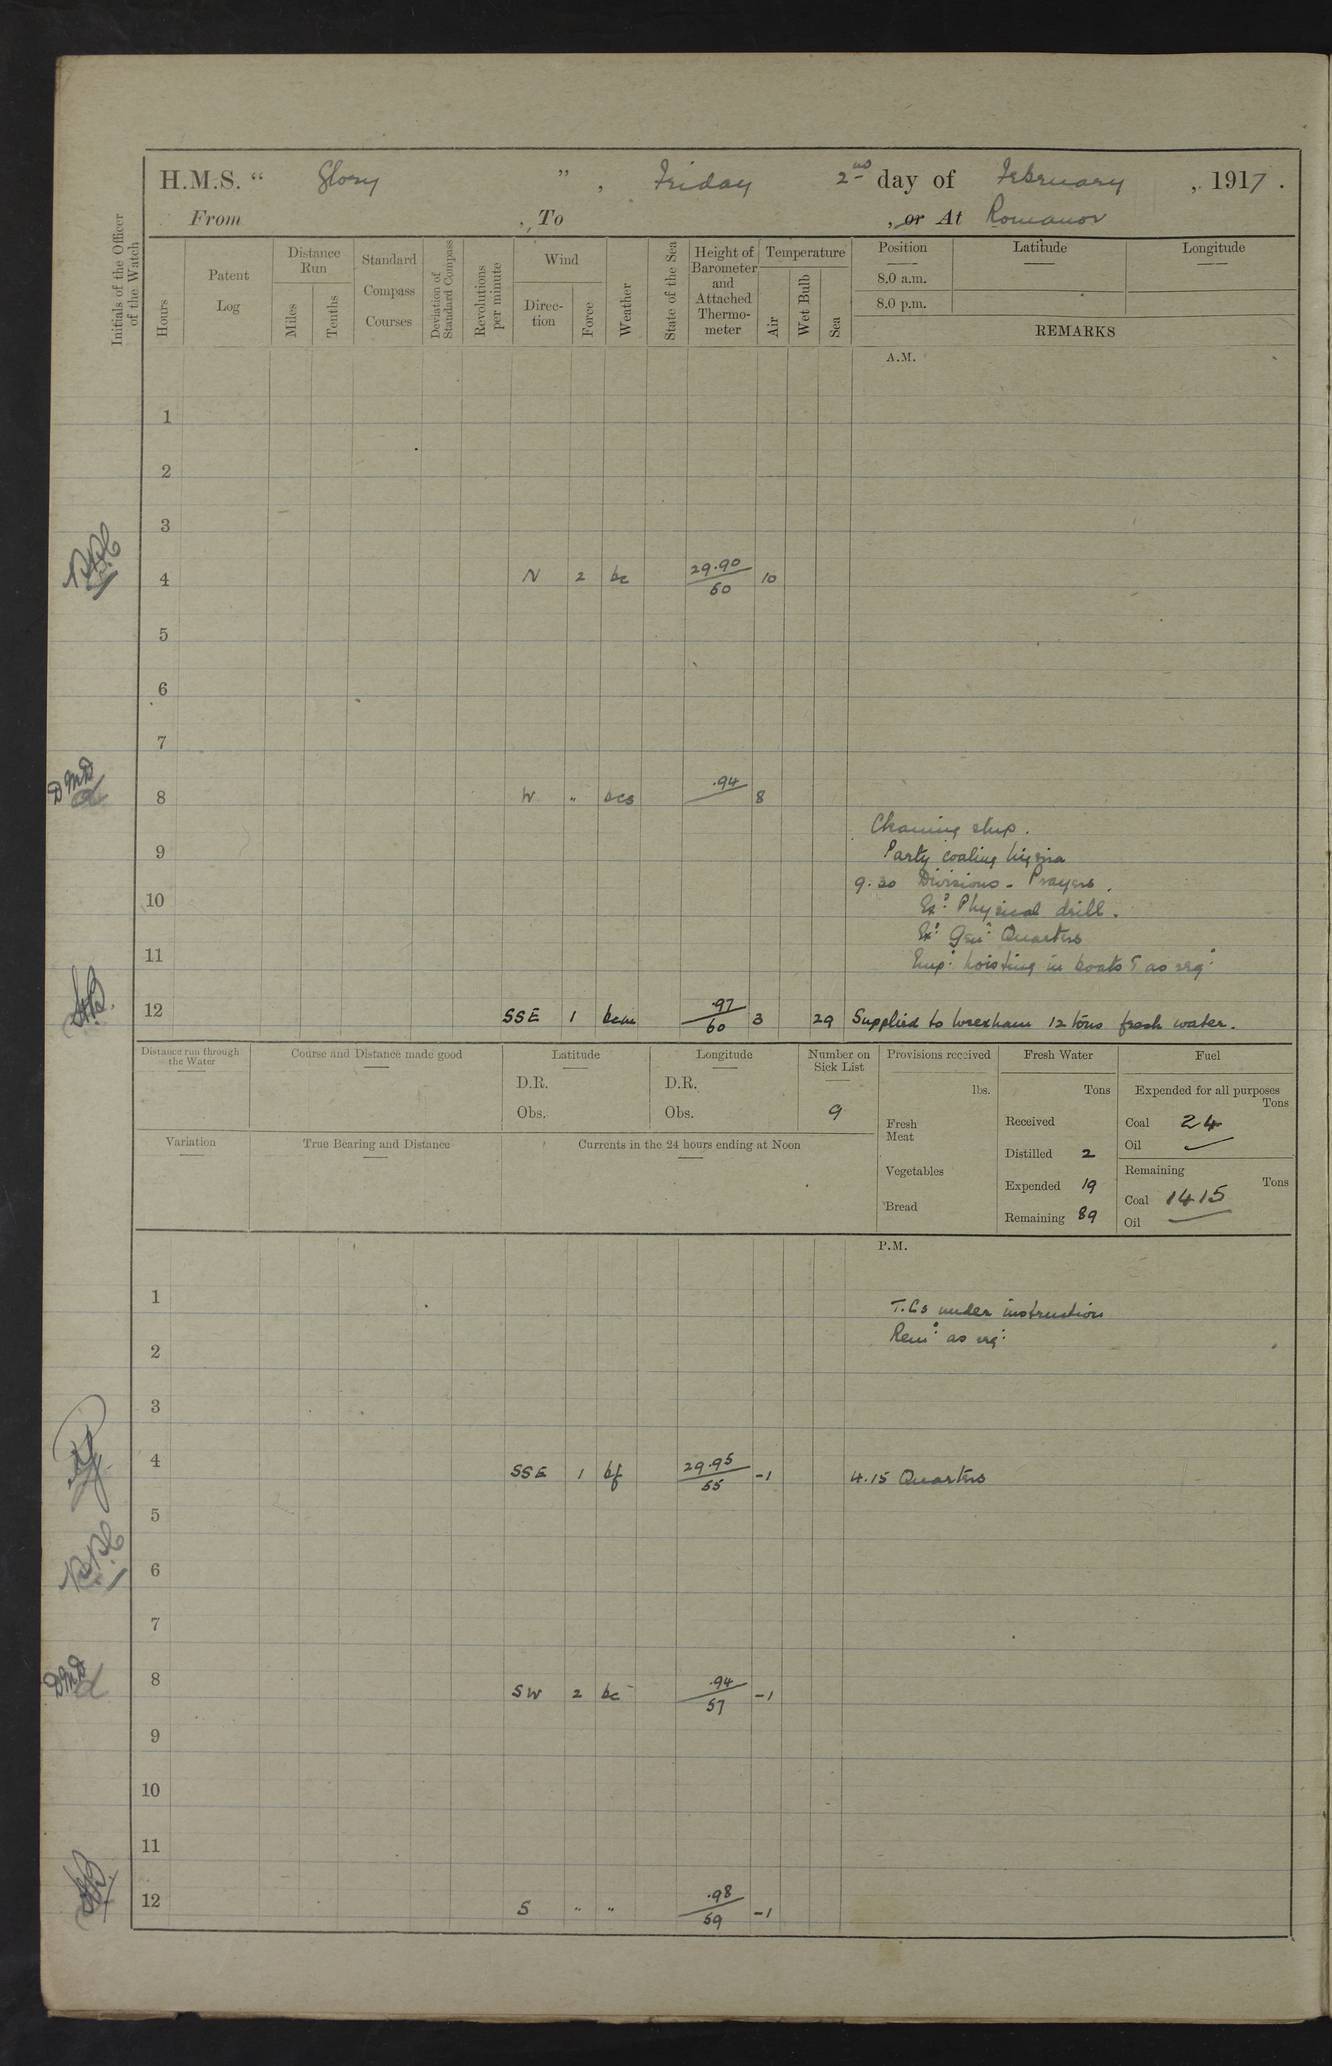 H.M.S. “ Glory ” , Friday 2nd day of February , 1917 .
From , To , or At Romanov
Initials of the Officer of the Watch
Hours
Patent Log
Distance Run
Miles
Tenths
Standard Compass Courses
Deviation of Standard Compass
Revolutions per minute
Wind
Direc-tion
Force
Weather
State of the Sea
Height of Barometer and Attached Thermo-meter
Temperature
Air
Wet Bulb
Sea
Position Latitude Longitude
8.0 a.m.
8.0 p.m.
REMARKS
A.M.
1
2
3
4 N 2 bc 29.90/60 10
5
6
7
DMD
8 W " bcs .94 8
Cleaning ship.
9 Party coaling
9.30 Divisions - Prayers.
10 Exd: Physical drill.
Exd: Genl: Quarters
11 Empd: hoisting in boats & as reqd:
12 SSE 1 bcm .97/60 3 29 Supplied to Wrexham 12 tons fresh water.
Distance run through the Water
Course and Distance made good
Latitude
D.R.
Obs.
Longitude
D.R.
Obs.
Number on Sick List
9
Provisions received
lbs.
Fresh Meat
Vegetables
Bread
Fresh Water
Tons
Received
Distilled 2
Expended 19
Remaining 89
Fuel
Expended for all purposes
Tons
Coal 24
Oil
Remaining
Tons
Coal 1415
Oil
Variation
True Bearing and Distance
Currents in the 24 hours ending at Noon
P.M.
1 T.Cs under instruction
2 Remd: as reqd:
3
4 SSE 1 bf 29.95/55 -1 4.15 Quarters
5
6
7
DMD
8 SW 2 bc .94/57 -1
9
10
11
12 S " " .98/59 -1